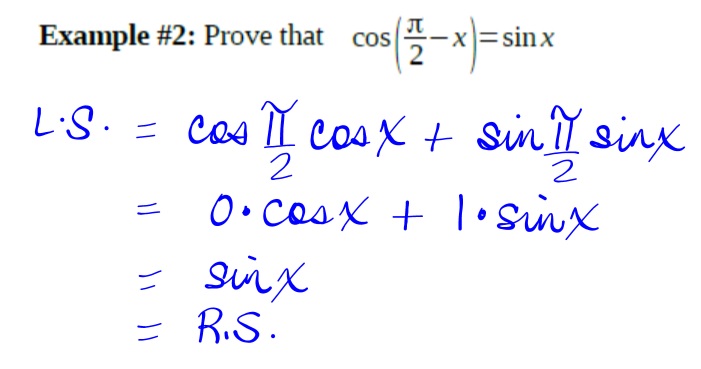 Example #2: Prove that cos(π/2 − x) = sin x
L.S. = cos π/2 cos x + sin π/2 sin x
= 0 · cos x + 1 · sin x
= sin x
= R.S.